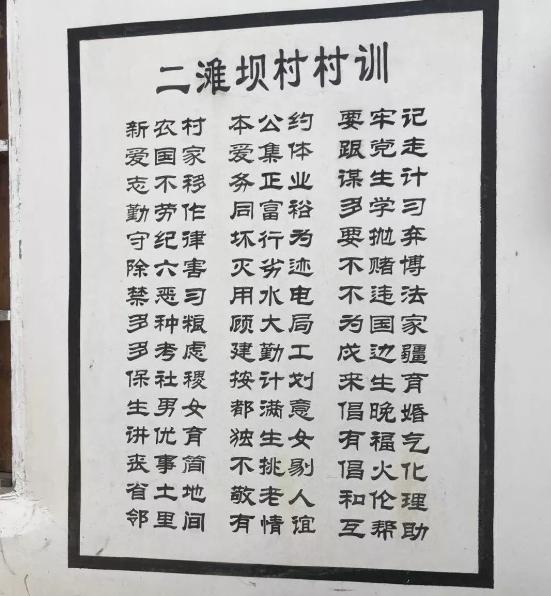 二滩坝村村训
新农村 本公约 要牢记
爱国家 爱集体 跟党走
志不移 务正业 谋生计
勤劳作 同富裕 多学习
守纪律 坏行为 要抛弃
除六害 灭劣迹 不赌博
禁恶习 用水电 不违法
多种粮 顾大局 为国家
多考虑 建勤工 戍边疆
保社稷 按计划 来生育
生男女 都满意 倡晚婚
讲优育 独生女 有福气
丧事简 不挑剔 倡火化
省土地 敬老人 和伦理
邻里间 有情谊 互帮助